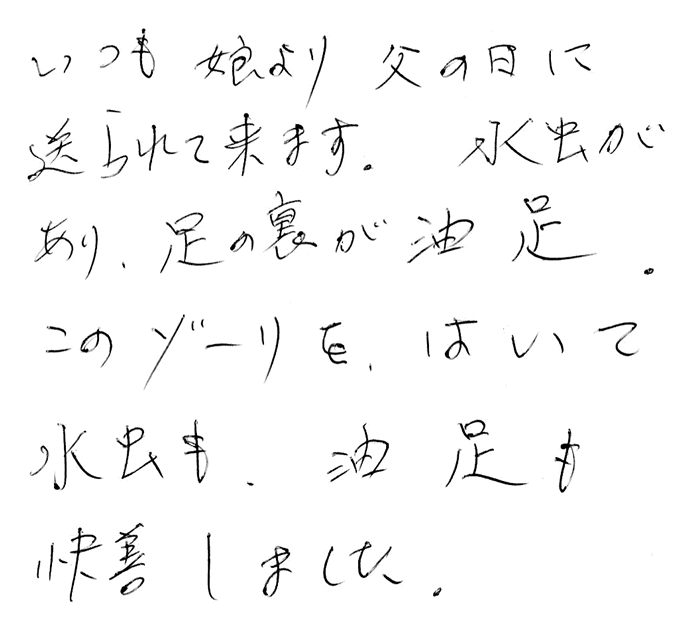 いつも 娘より 父の日に
送られて来ます。 水虫が
あり、足の裏が 油 足 .
この ゾーリを、はいて
水虫も、油 足も
快善しました.